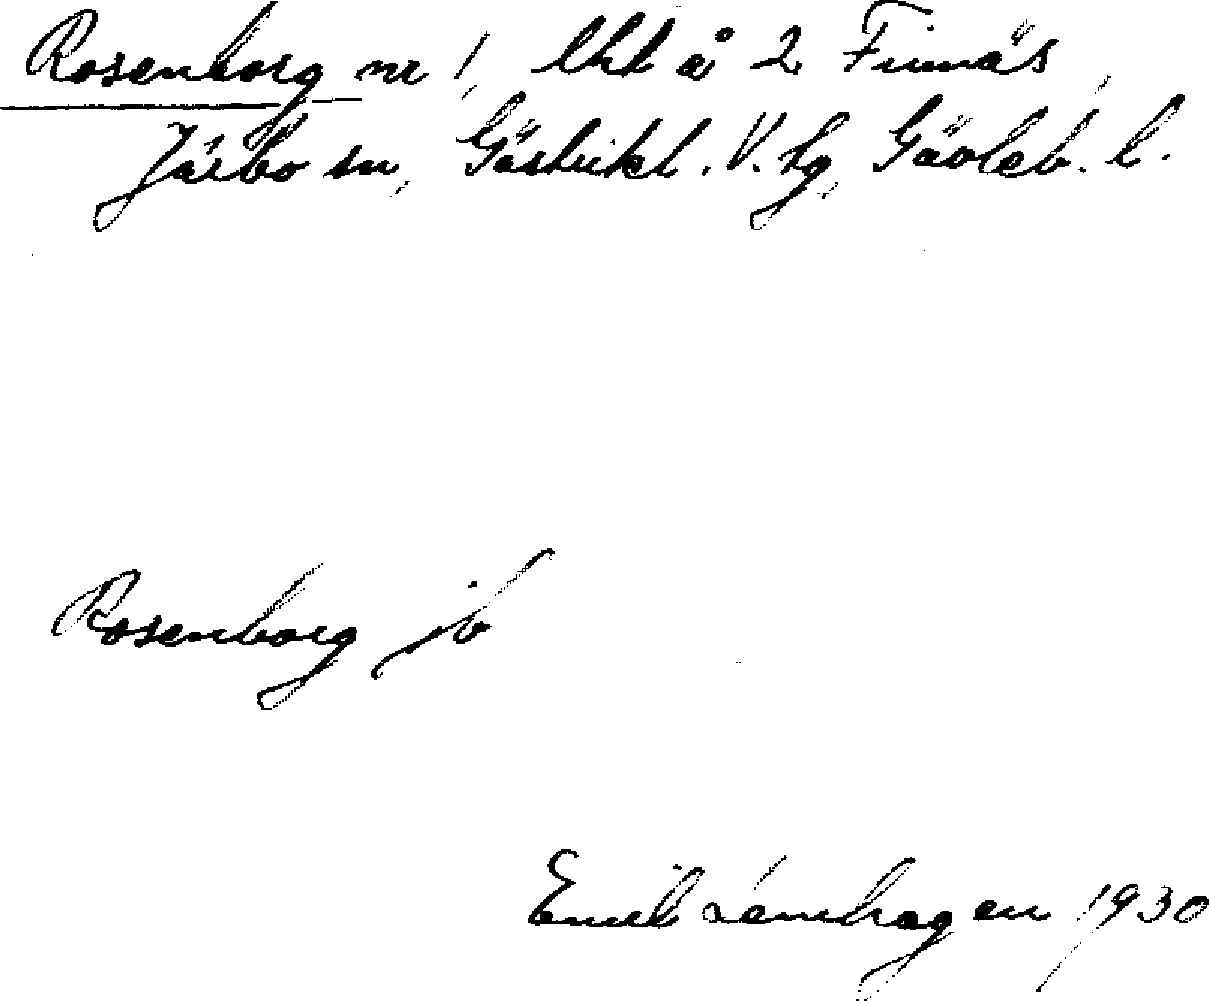 Rosenborg nr 1, lht å 2 Finnäs,
Järbo sn, Gästrikl. V. tg, Gävleb. l.
Rosenborg jb
Emil Lennhagen 1930